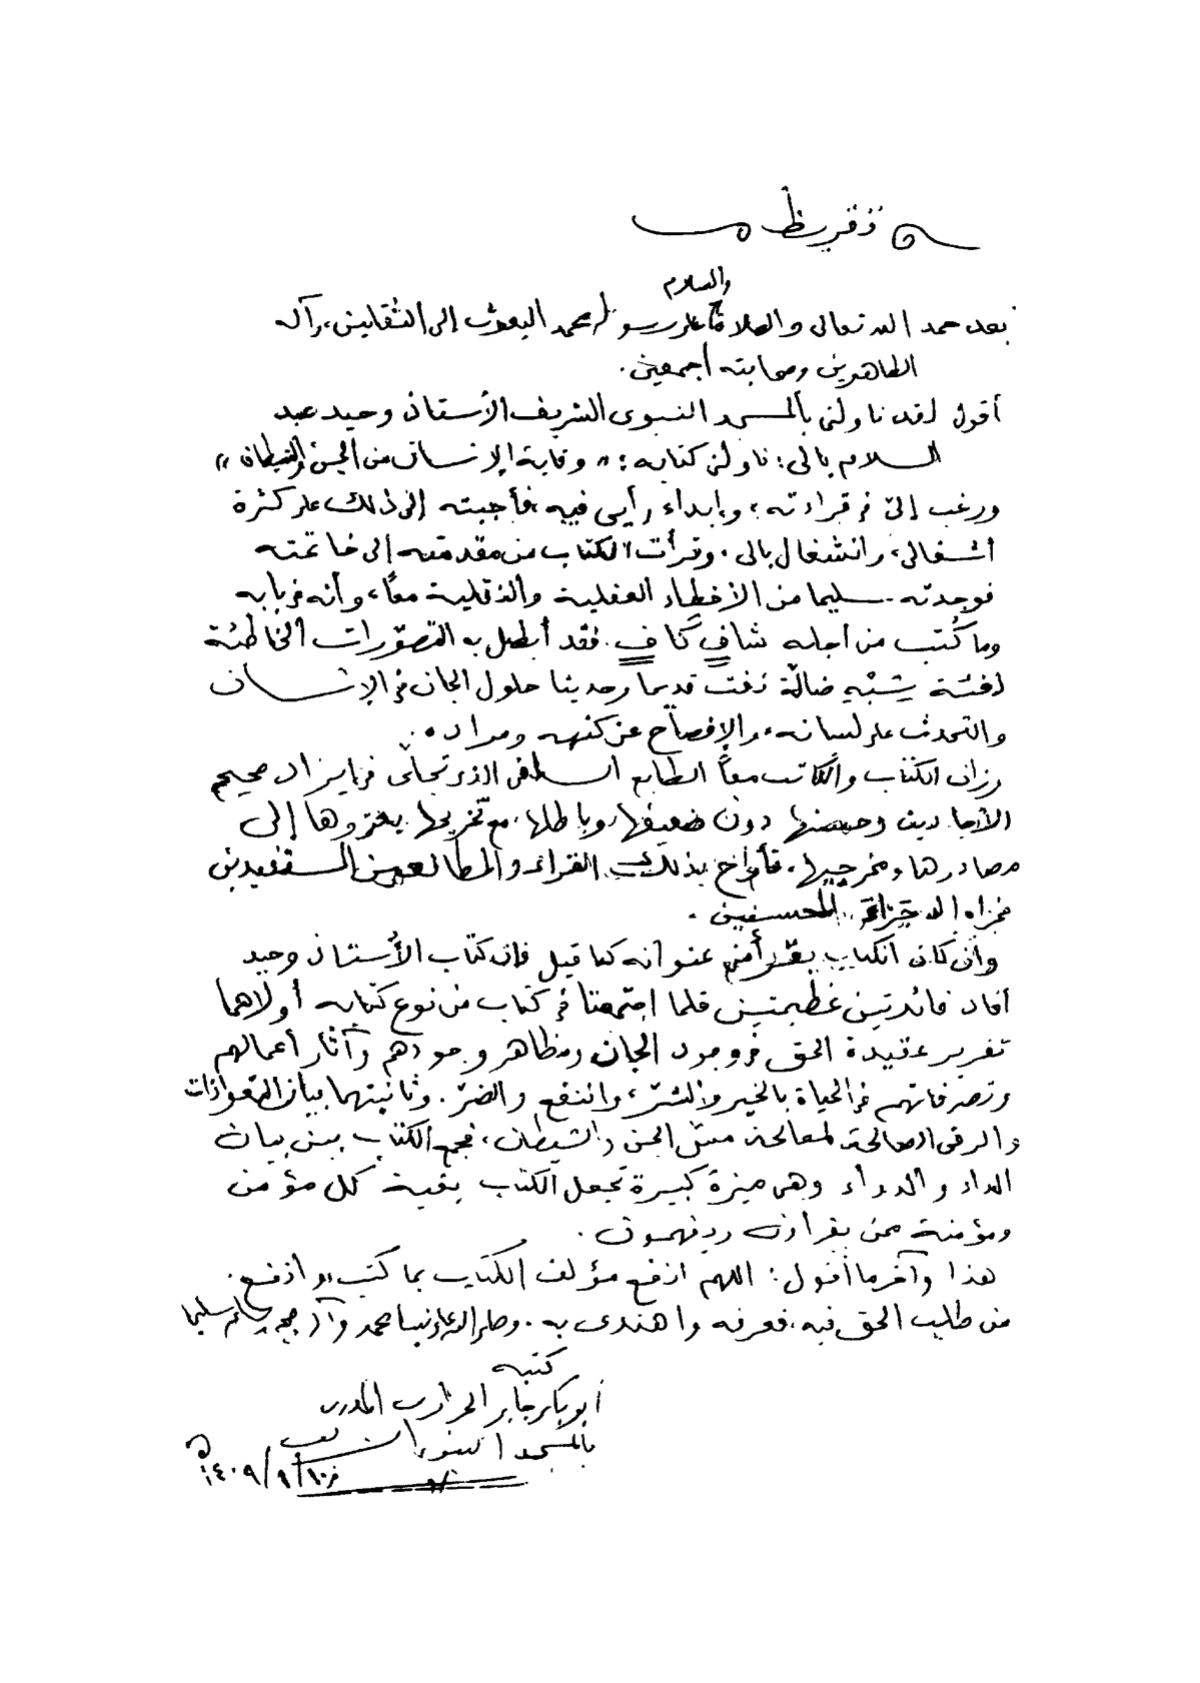 تقريظ
والسلام
بعد حمد الله تعالى والصلاة على رسوله محمد المبعوث إلى الثقلين، وآله
الطاهرين وصحابته أجمعين.
أقول لقد ناولني بالمسجد النبوي الشريف الأستاذ وحيد عبد
السلام بالي: ناولني كتابه: «وقاية الإنسان من الجن والشيطان»
ورغب إليّ في قراءته، وإبداء رأيي فيه، فأجبته إلى ذلك على كثرة
أشغالي، وانشغال بالي. وقرأت الكتاب من مقدمته إلى خاتمته
فوجدته سليما من الأخطاء العقلية والنقلية معاً، وأنه في بابه
وما كُتب من أجله شافٍ كافٍ. فقد أبطل به التصوّرات الخاطئة
لفئة شِبْهِ ضالّة نفت قديما وحديثا حلول الجان في الإنسان
والتحدث على لسانه، والإفصاح عن كنهه ومراده.
وزان الكتاب والكاتب معاً الطابع السلفي الذي تجلّى في إيراد صحيح
الأحاديث وحسنها دون ضعيفها، وباطلها، مع تخريجها بعزوها إلى
مصادرها ومخرجيها، فأراح بذلك القراء والمطالعين المستفيدين
فجزاه الله جزاء المحسنين.
وإن كان الكتاب يقرأ من عنوانه كما قيل فإن كتاب الأستاذ وحيد
أفاد فائدتين عظيمتين قلما اجتمعتا في كتاب من نوع كتابه أولاهما
تقرير عقيدة الحق في وجود الجان ومظاهر وجودهم وآثار أعمالهم
وتصرفاتهم في الحياة بالخير والشر، والنفع والضرّ. وثانيتهما بيان التعوذات
والرقى الصالحة لمعالجة مسّ الجن والشيطان، فجمع الكتاب بين بيان
الداء والدواء وهي ميزة كبيرة تجعل الكتاب بغية كل مؤمن
ومؤمنة ممن يقرأون ويفهمون.
هذا وآخر ما أقول: اللهم انفع مؤلف الكتاب بما كتب، وانفع به
من طلب الحق فيه، فعرفه واهتدى به. وصلى الله على نبينا محمد وآله وصحبه وسلم تسليما
كتبه
أبو بكر جابر الجزائري المدرس
بالمسجد النبوي الشريف
في ١٠/١/١٤٠٩هـ